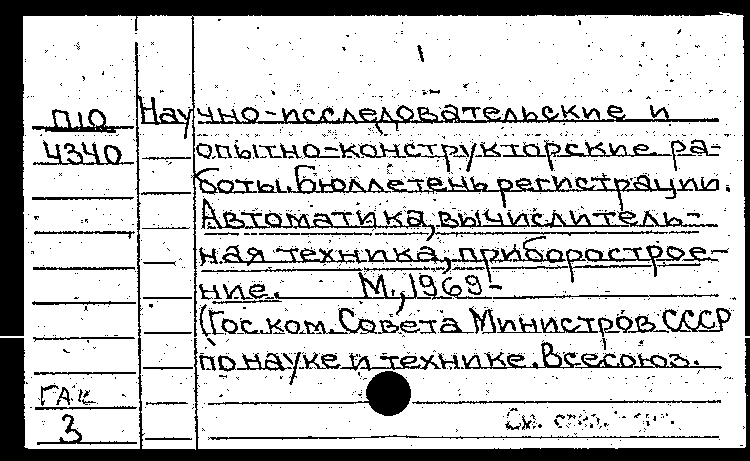 1
П10 Научно-исследовательские и
4340 опытно-конструкторские ра-
боты. Бюллетень регистрации.
Автоматика, вычислитель-
ная техника, приборострое-
ние. М., 1969-
(Гос. ком. Совета Министров СССР
по науке и технике. Всесоюз.
ГАК
3 См.